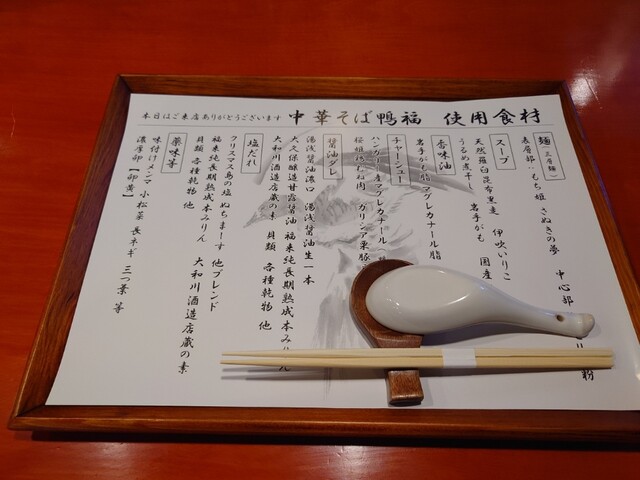 本日はご来店ありがとうございます 中華そば鴨福 使用食材
麺(三層麺)
表層部:もち姫 さぬきの夢 中心部
粉
スープ
天然羅臼昆布黒走 伊吹いりこ
うるめ煮干し 岩手がも 国産
香味油
岩手がも脂 マグレカナール脂
チャーシュー
ハンガリー産マグレカナール
桜姫鶏むね肉 ガリシア栗豚
醤油ダレ
湯浅醤油濃口 湯浅醤油生一本
大久保醸造甘露醤油 福来純長期熟成本みりん
大和川酒造店蔵の素 貝類 各種乾物 他
塩だれ
クリスマス島の塩 ぬちまーす 他ブレンド
福来純長期熟成本みりん 大和川酒造店蔵の素
貝類 各種乾物 他
薬味等
味付けメンマ 小松菜 長ネギ 三つ葉 等
濃厚卵【卵黄】